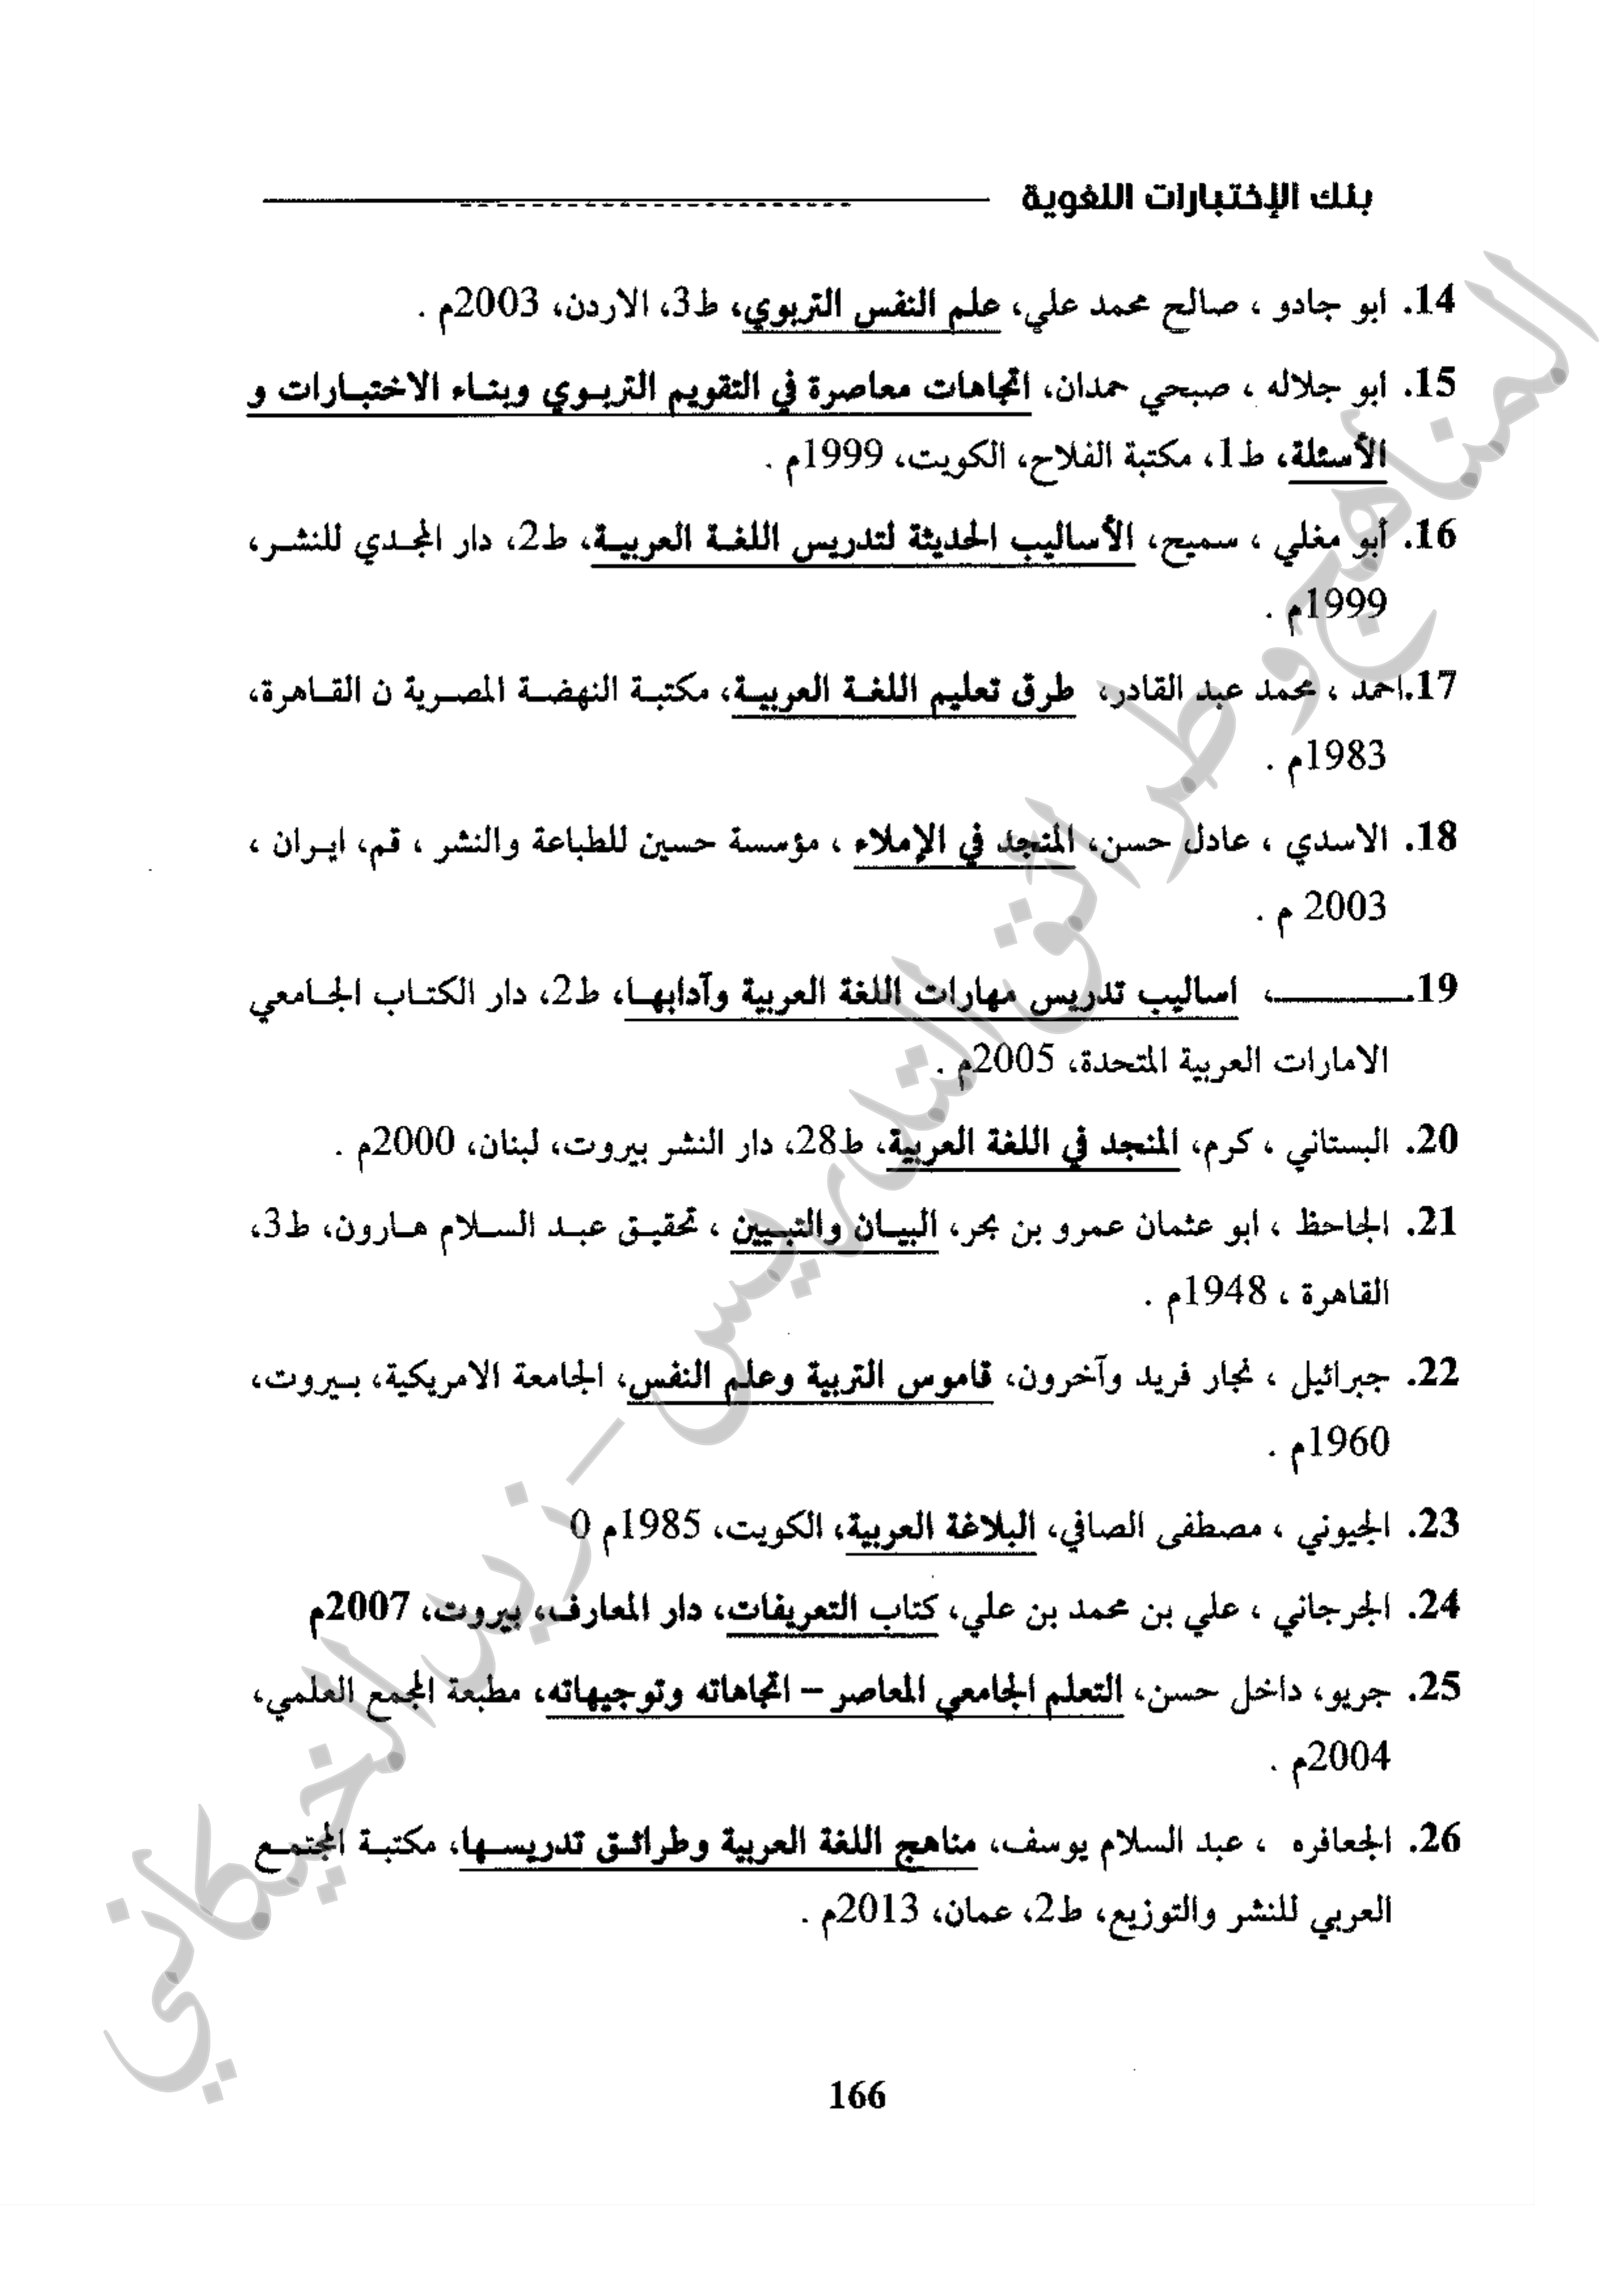 بنك الإختبارات اللغوية
14. ابو جادو ، صالح محمد علي، علم النفس التربوي، ط3، الاردن، 2003م .
15. ابو جلاله ، صبحي حمدان، اتجاهات معاصرة في التقويم التربوي وبناء الاختبارات و
الأسئلة، ط1، مكتبة الفلاح، الكويت، 1999م .
16. أبو مغلي ، سميح، الأساليب الحديثة لتدريس اللغة العربية، ط2، دار المجدي للنشر،
1999م .
17.احمد ، محمد عبد القادر، طرق تعليم اللغة العربية، مكتبة النهضة المصرية ن القاهرة،
1983م .
18. الاسدي ، عادل حسن، المنجد في الإملاء ، مؤسسة حسين للطباعة والنشر ، قم، ايران ،
2003 م .
19.ــــــــــــ، اساليب تدريس مهارات اللغة العربية وآدابها، ط2، دار الكتاب الجامعي
الامارات العربية المتحدة، 2005م .
20. البستاني ، كرم، المنجد في اللغة العربية، ط28، دار النشر بيروت، لبنان، 2000م .
21. الجاحظ ، ابو عثمان عمرو بن بحر، البيان والتبيين ، تحقيق عبد السلام هارون، ط3،
القاهرة ، 1948م .
22. جبرائيل ، نجار فريد وآخرون، قاموس التربية وعلم النفس، الجامعة الامريكية، بيروت،
1960م .
23. الجيوني ، مصطفى الصافي، البلاغة العربية، الكويت، 1985م 0
24. الجرجاني ، علي بن محمد بن علي، كتاب التعريفات، دار المعارف، بيروت، 2007م
25. جريو، داخل حسن، التعلم الجامعي المعاصر – اتجاهاته وتوجيهاته، مطبعة المجمع العلمي،
2004م .
26. الجعافره ، عبد السلام يوسف، مناهج اللغة العربية وطرائق تدريسها، مكتبة المجتمع
العربي للنشر والتوزيع، ط2، عمان، 2013م .
166
المناهج وطرائق التدريس – زيد الخيكاني